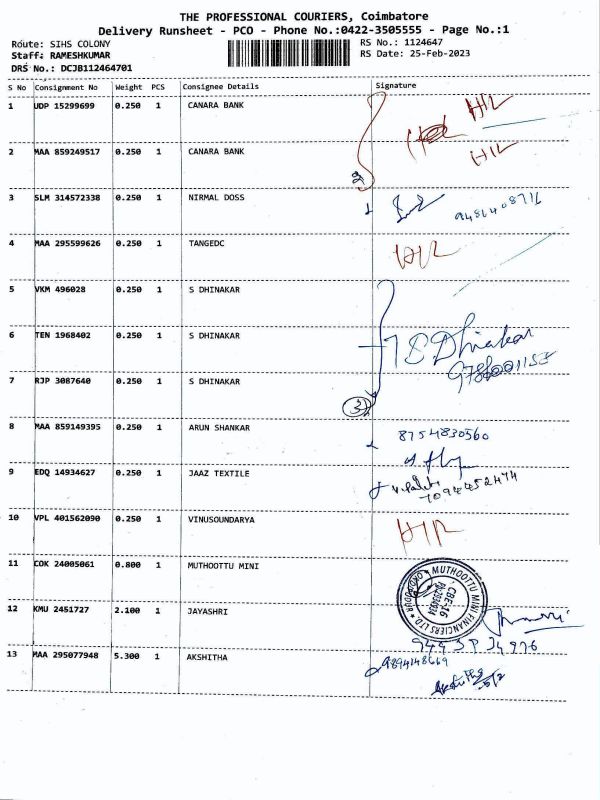 THE PROFESSIONAL COURIERS, Coimbatore
Delivery Runsheet - PCO - Phone No.:0422-3505555 - Page No.:1
Route: SIHS COLONY RS No.: 1124647
Staff: RAMESHKUMAR RS Date: 25-Feb-2023
DRS No.: DCJB112464701
S No Consignment No Weight PCS Consignee Details Signature
1 UDP 15299699 0.250 1 CANARA BANK
2 MAA 859249517 0.250 1 CANARA BANK
2
3 SLM 314572338 0.250 1 NIRMAL DOSS
4 MAA 295599626 0.250 1 TANGEDC
5 VKM 496028 0.250 1 S DHINAKAR
6 TEN 1968402 0.250 1 S DHINAKAR
S Dhinakar
7 RJP 3087640 0.250 1 S DHINAKAR
3
8 MAA 859149395 0.250 1 ARUN SHANKAR
8754830560
9 EDQ 14934627 0.250 1 JAAZ TEXTILE
7094452474
10 VPL 401562090 0.250 1 VINUSOUNDARYA
11 COK 24005061 0.800 1 MUTHOOTTU MINI
MUTHOOTTU MINI FINANCIERS LTD
CBE-16
12 KMU 2451727 2.100 1 JAYASHRI
13 MAA 295077948 5.300 1 AKSHITHA
9894148669